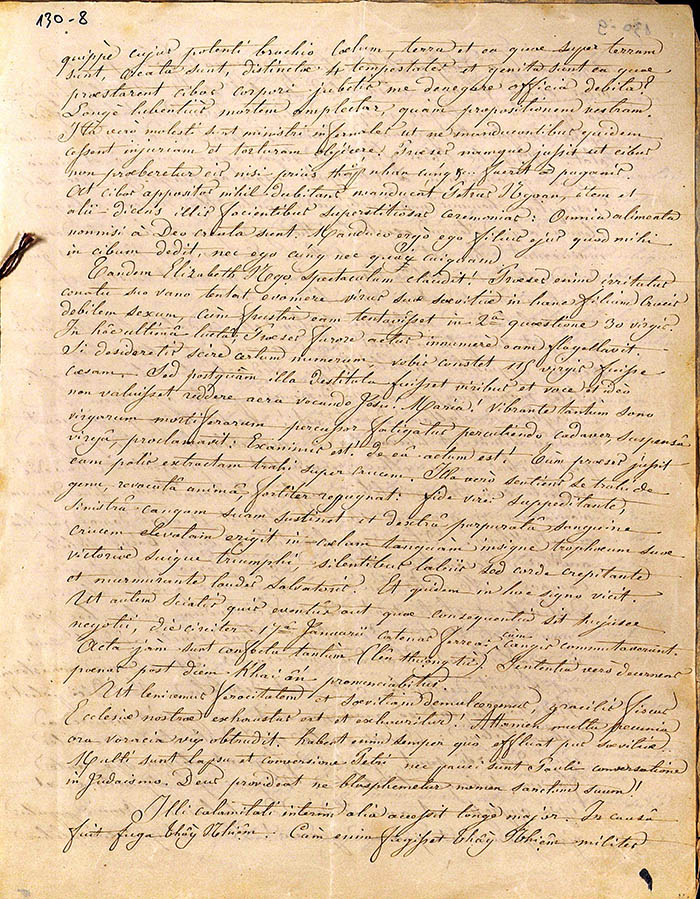 130-8
quippè cujus potenti brachio coelum, terra et ea quae super terram
sunt, creata sunt, distinctae 4 tempestates et genita sunt ea quae
praestarent cibos corpori jubetis me denegare officia debita?
Longè libentiùs mortem amplectar, quàm propositionem vestram.
Ità vero molesti sunt ministri infernales ut ne manducantibus quidem
cessent injuriam et torturam objicere. Praeses namque jussit ut cibus
non praeberetur eis nisi priùs thắp nhan cúng fuerit à paganis
At cibos appositos nihil dubitans manducat Petrus Ngoan, item et
alii dicens illis facientibus superstitiosas ceremonias: Omnia alimenta
nonnisi à Deo creata sunt. Manduco ergò ego filius ejus quod mihi
in cibum dedit, nec ego cúng nec quảy cuiquam
Tandem Elizabeth Ngo spectaculum claudit! Praeses enim irritatus
conatu suo vano tentat evomere virus suae saevitiae in hanc filiam Crucis
debilem sexum, cùm frustra eam tentavisset in 2â quaestione 30 virgis.
In hâc ultimâ luctâ, Praeses furore actus innumere eam flagellavit.
Si desideretis scire certum numerum vobis constet 115 virgis fuisse
caesam. Sed postquàm illa destituta fuisset viribus et voce et ideò
non valuisset reddere aera vocando Jesu! Maria! vibrante tantum sono
virgarum mortiferarum percussor fatigatus percutiendo cadaver, suspensâ
virgâ, proclamavit: Exanimis est! de eâ actum est! Cùm praeses jussit
eam palis extractam trahi super crucem. Illa verò sentiens se trahi de
genu, revocatâ animâ, fortiter repugnat: fide vires suppeditante,
sinistrâ cangam suam sustinet et dextrâ purpuratâ sanguine
crucem elevatam erigit in coelum tanquàm insigne trophoeum suae
victoriae suique triumphi, silentibus labiis sed corde crepitante
et murmurante laudes Salvatoris. Et quidem in hoc signo vicit.
Ut autem sciatis quis eventus aut quae consequentia sit hujusce
negotii, die circiter 17â Januarii catenas ferreas cum cangis commutaverunt.
Acta jàm sunt confecta tantùm (lên thương tư) Sententia verò decernens
poenas post diem Khai ấn pronunciabitur.
Ut leniremus ferocitatem et saevitiam demulceremus, gracilis fiscus
Ecclesiae nostrae exhaustus est et exhauritur! Attamen multa pecunia
ora voracia vix obtrudit. habent enim semper quò effluat pus saevitiae
Multi sunt lapsu et conversione Petri nec pauci sunt Pauli conversatione
in Judaismo. Deus provideat ne blasphemetur nomen sanctum suum!
Illi calamitati interim alia accessit longè major. In causâ
fuit fuga thầy Nhiệm: Cùm enim fugisset thầy Nhiệm milites